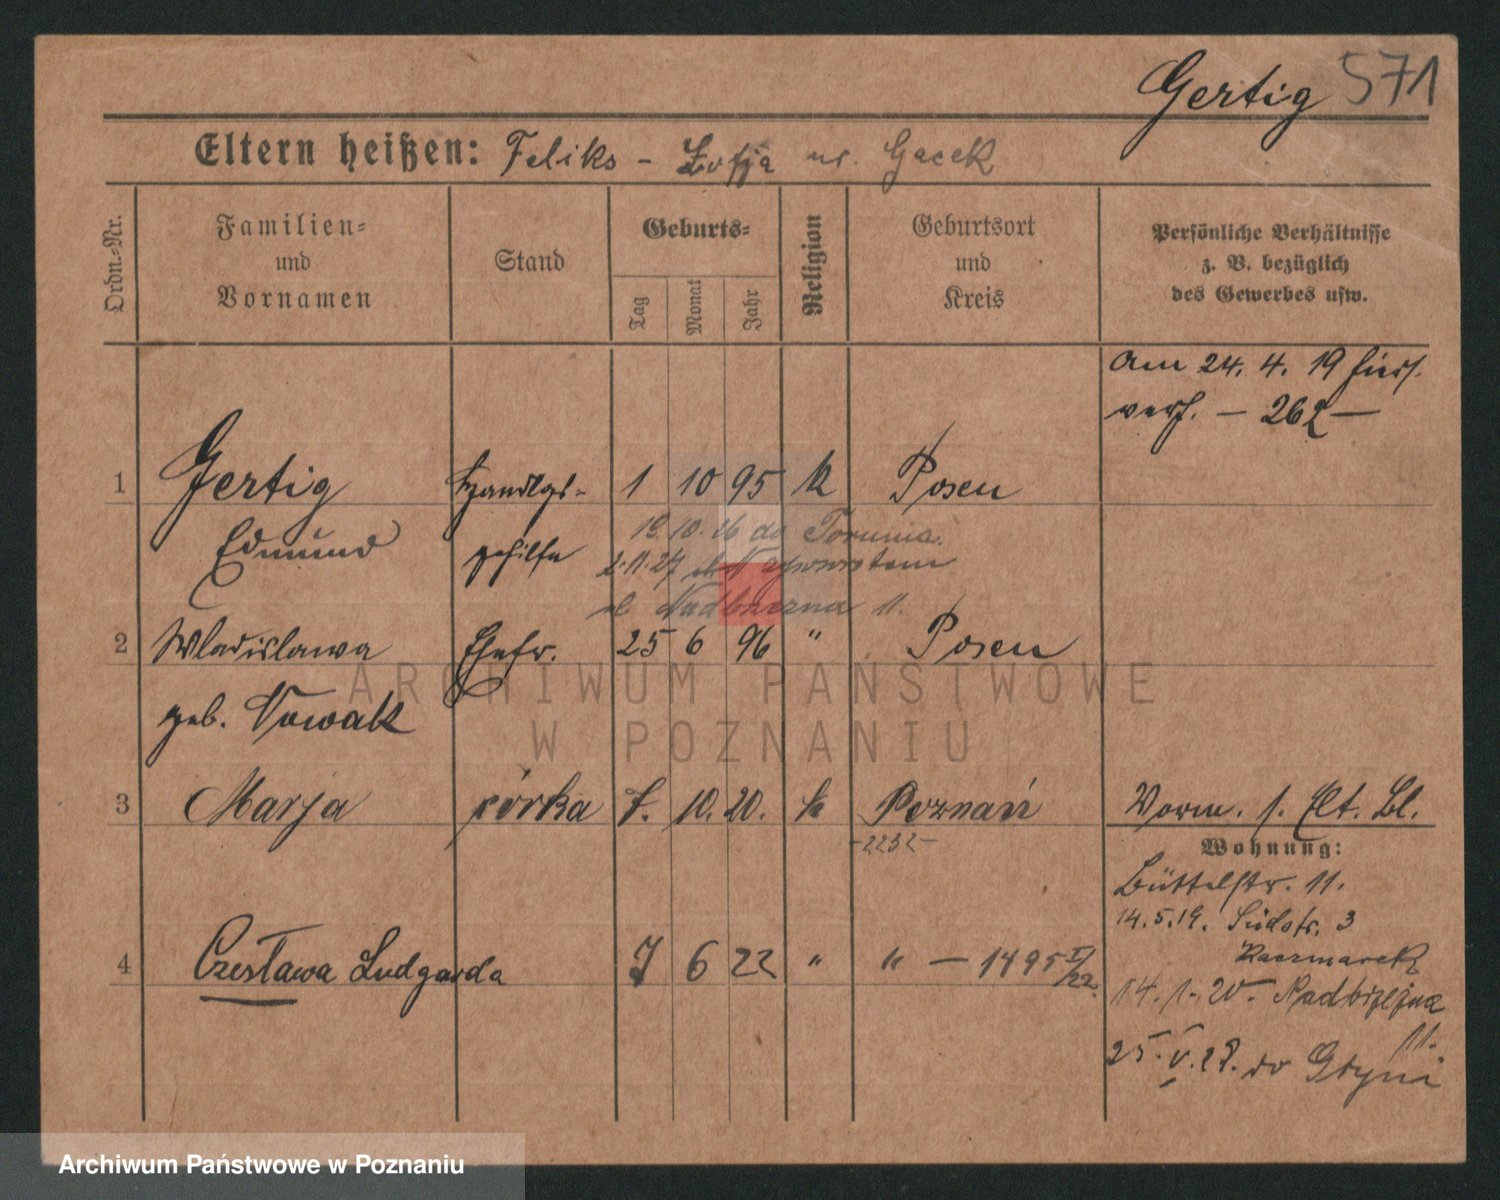 Gertig 571
Eltern heißen: Feliks - Zofja ur. Gacek
Ordn.-Nr.
Familien-
und
Vornamen
Stand
Geburts-
Tag
Monat
Jahr
Religion
Geburtsort
und
Kreis
Persönliche Verhältnisse
z. B. bezüglich
des Gewerbes usw.
am 24. 4. 19
verh. - 262 -
1 Gertig Handlgs- 1 10 95 k Posen
Edmund gehilfe
19. 10. 26 do Torunia.
2.11.27 z powrotem
ul Nadbrzezna 11.
2 Wladislawa Ehefr. 25 6 96 " Posen
geb. Nowak
3 Marja córka 7. 10. 20. k Poznań
-2232-
Vorm. s. Elt. Bl.
Wohnung:
Büttelstr. 11.
14.5.19. Südstr. 3
Kaczmarek
4 Czesława Ludgarda 7 6 22 " " - 1495 I/22.
14. 1. 20. Nadbrzeżna
11.
25. V. 28. do Gdyni
ARCHIWUM PAŃSTWOWE
W POZNANIU
Archiwum Państwowe w Poznaniu